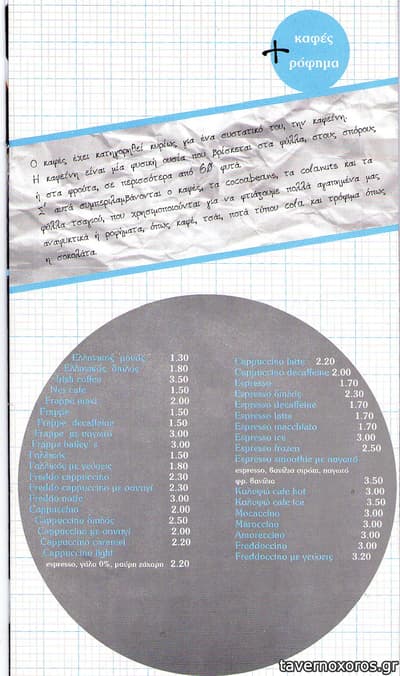 καφές
+
ρόφημα
Ο καφές, έχει κατηγορηθεί κυρίως για ένα συστατικό του, την καφεΐνη.
Η καφεΐνη είναι μία φυσική ουσία που βρίσκεται στα φύλλα, στους σπόρους,
ή στα φρούτα, σε περισσότερα από 60 φυτά.
Σ' αυτά συμπεριλαμβάνονται ο καφές, τα cocoabeans, τα colanuts και τα
φύλλα τσαγιού, που χρησιμοποιούνται για να φτιάξουμε πολλά αγαπημένα μας
αναψυκτικά ή ροφήματα, όπως καφέ, τσάι, ποτά τύπου cola και τρόφιμα όπως
η σοκολάτα.
Ελληνικός μονός 1.30
Ελληνικός διπλός 1.80
Irish coffee 3.50
Nes cafe 1.50
Frappe 2.00
Frappe 1.50
Frappe decaffeine 1.50
Frappe με παγωτό 3.00
Frappe bailey's 3.00
Γαλλικός 1.50
Γαλλικός με γεύσεις 1.80
Freddo cappuccino 2.30
Freddo cappuccino με σαντιγί 2.30
Freddo 3.00
Cappuccino 2.00
Cappuccino διπλός 2.50
Cappuccino με σαντιγί 2.00
Cappuccino caramel 2.20
Cappuccino light
espresso, γάλα 0%, μαύρη ζάχαρη 2.20
Cappuccino latte 2.20
Cappuccino decaffeine 2.00
Espresso 1.70
Espresso διπλός 2.30
Espresso decaffeine 1.70
Espresso latte 1.70
Espresso macchiato 1.70
Espresso ice 3.00
Espresso frozen 2.50
Espresso smoothie με παγωτό
espresso, βανίλια σιρόπι, παγωτό
φρ. βανίλια 3.50
Καλυψώ cafe hot 3.00
Καλυψώ cafe ice 3.50
Mocaccino 3.00
Maroccino 3.00
Amoreccino 3.00
Freddoccino 3.00
Freddoccino με γεύσεις 3.20
tavernoxoros.gr